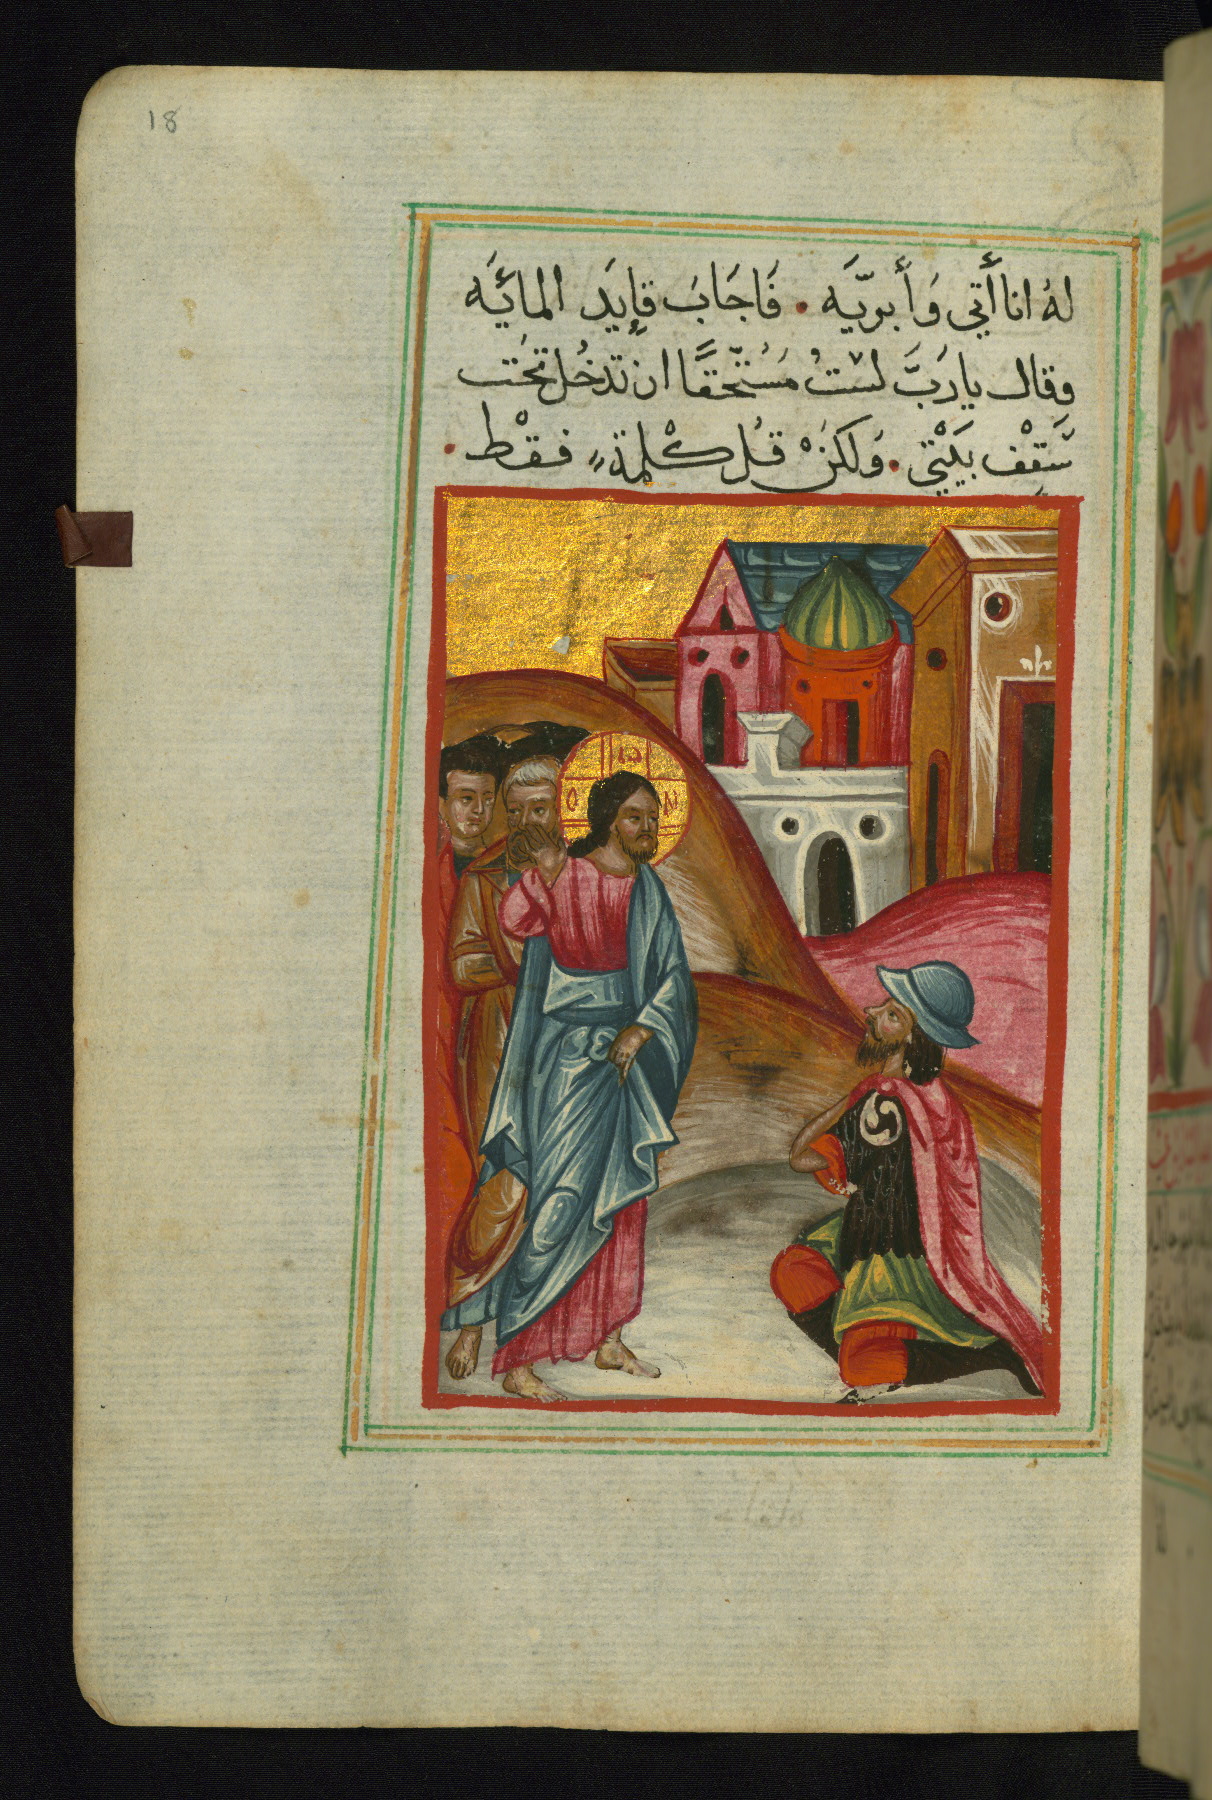 18
لهُ انا أَتي وَأَبريّه . فَاجَابَ قايِدَ المائَيَه
وقال يارَبَّ لسْتُ مُسْتّحَقًّا ان تدخُل تحُت
سَقِفْ بَيْتي . وَلكنْ قُل كْلمةٍ فقْط .
Ο ω Ν